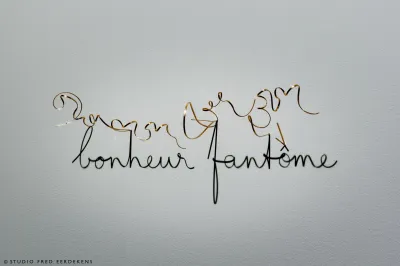 bonheur fantôme
© STUDIO FRED EERDEKENS